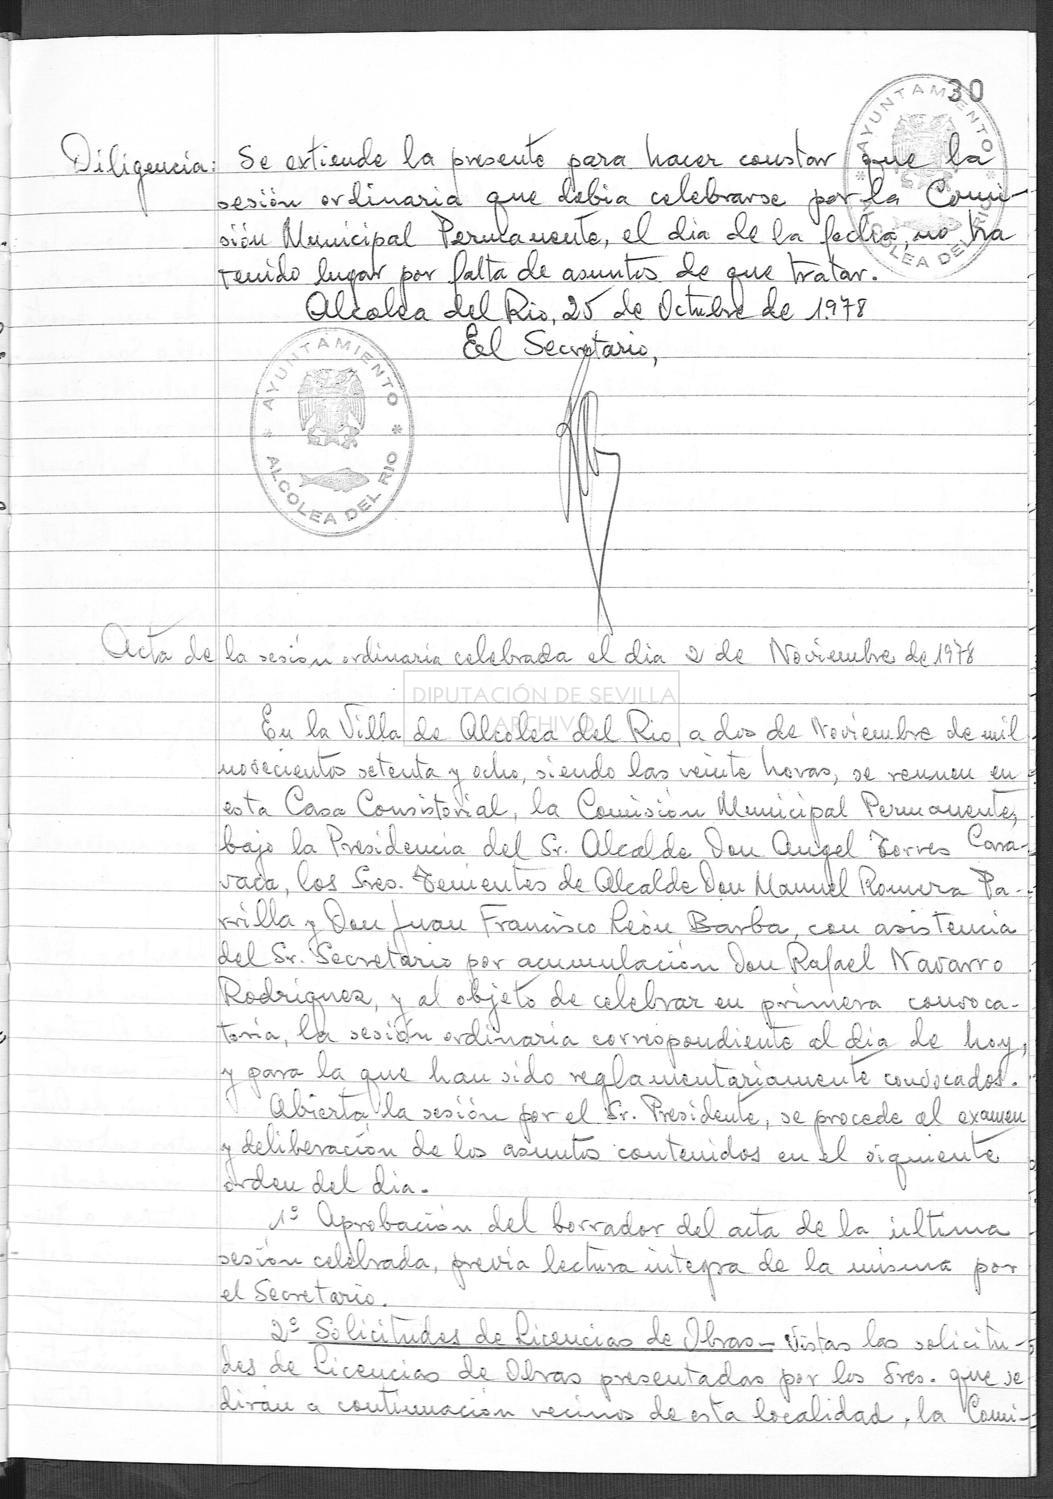 30
AYUNTAMIENTO
ALCOLEA DEL RIO
Diligencia: Se extiende la presente para hacer constar que la
sesión ordinaria que debia celebrarse por la Comi-
sión Municipal Permanente, el dia de la fecha, no ha
tenido lugar por falta de asuntos de que tratar.
Alcolea del Rio, 25 de Octubre de 1.978
El Secretario,
AYUNTAMIENTO
ALCOLEA DEL RIO
Acta de la sesión ordinaria celebrada el dia 2 de Noviembre de 1978
DIPUTACIÓN DE SEVILLA
ARCHIVO
En la Villa de Alcolea del Rio, a dos de Noviembre de mil
novecientos setenta y ocho, siendo las veinte horas, se reunen en
esta Casa Consistorial, la Comisión Municipal Permanente,
bajo la Presidencia del Sr. Alcalde Don Angel Torres Cara-
vaca, los Sres. Tenientes de Alcalde Don Manuel Romera Pa-
rrilla y Don Juan Francisco León Barba, con asistencia
del Sr. Secretario por acumulación Don Rafael Navarro
Rodriguez, y al objeto de celebrar en primera convoca-
toria, la sesión ordinaria correspondiente al dia de hoy,
y para la que han sido reglamentariamente convocados.
Abierta la sesión por el Sr. Presidente, se procede al examen
y deliberación de los asuntos contenidos en el siguiente
orden del dia.
1º Aprobación del borrador del acta de la última
sesión celebrada, previa lectura integra de la misma por
el Secretario.
2º Solicitudes de Licencias de Obras - Vistas las solicitu-
des de Licencias de Obras presentadas por los Sres. que se
dirán a continuación vecinos de esta localidad, la Comi-